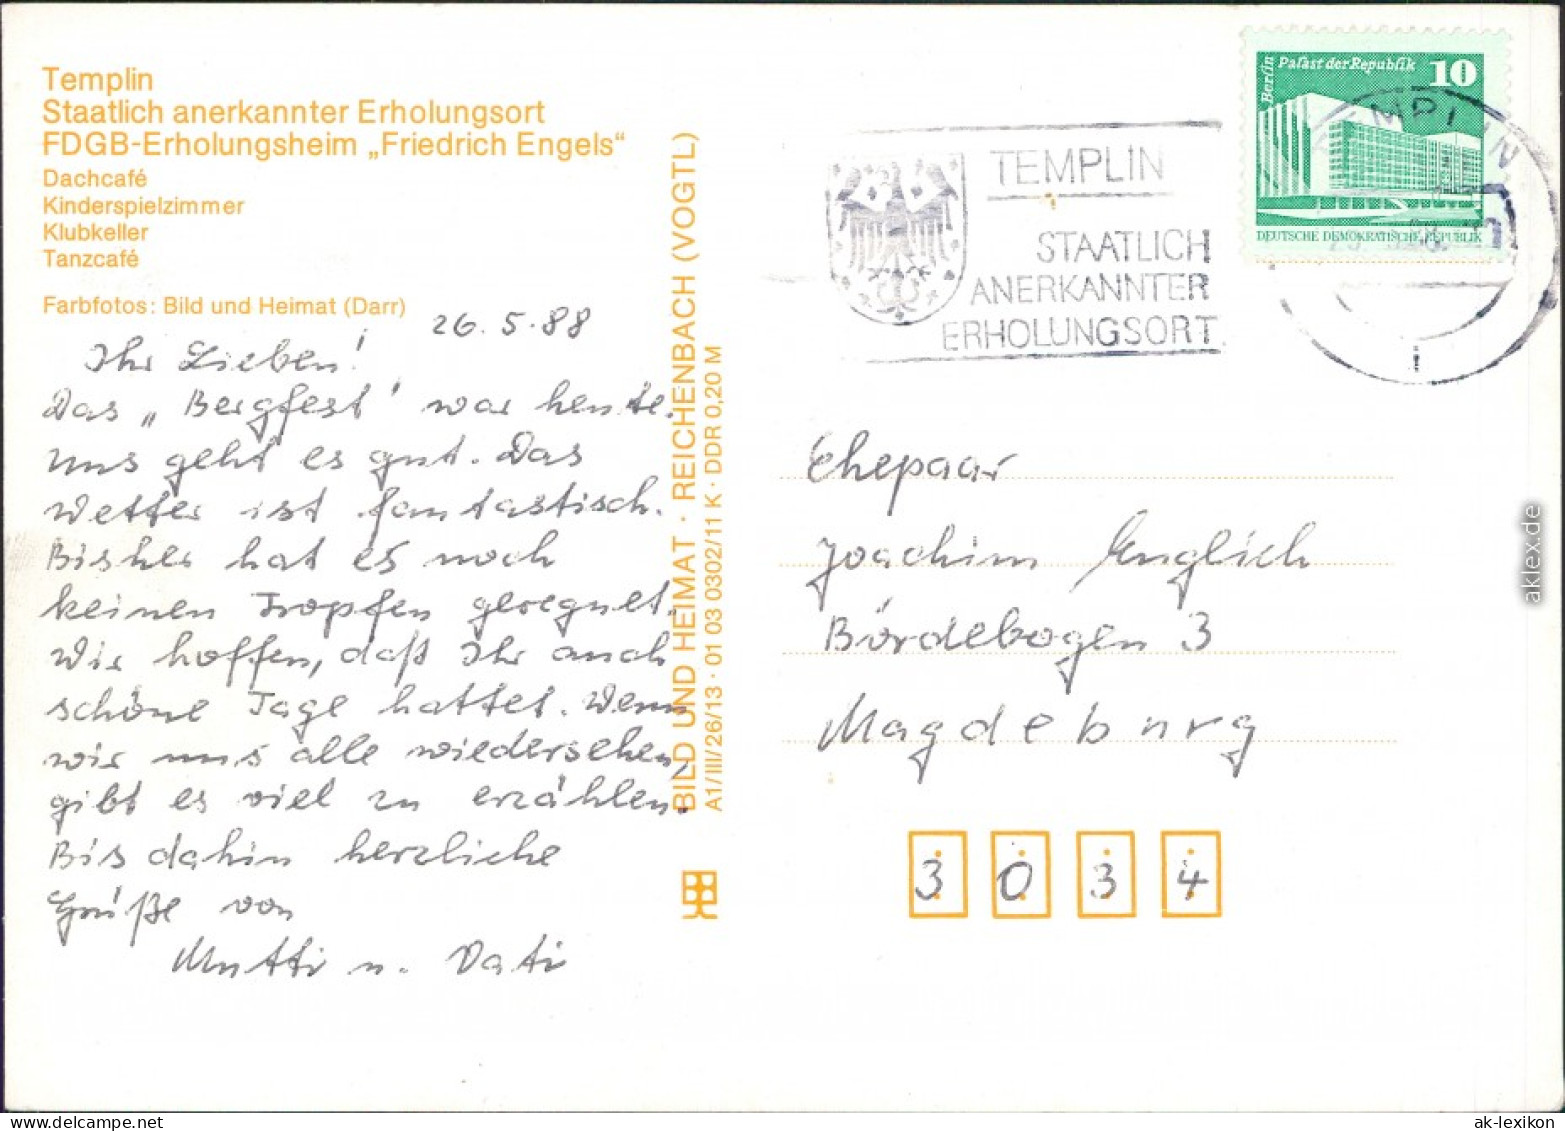 Templin
Staatlich anerkannter Erholungsort
FDGB-Erholungsheim „Friedrich Engels“
Dachcafé
Kinderspielzimmer
Klubkeller
Tanzcafé
Farbfotos: Bild und Heimat (Darr)
26.5.88
Ihr Lieben!
Das „Bergfest' war heute.
Uns geht es gut. Das
Wetter ist fantastisch.
Bisher hat es noch
keinen Tropfen geregnet.
Wir hoffen, daß Ihr auch
schöne Tage hattet. Wenn
wir uns alle wiedersehen,
gibt es viel zu erzählen.
Bis dahin herzliche
Grüße von
Mutti u. Vati
BILD UND HEIMAT · REICHENBACH (VOGTL)
A1/III/26/13 · 01 03 0302/11 K · DDR 0,20 M
TEMPLIN
STAATLICH
ANERKANNTER
ERHOLUNGSORT
Berlin
Palast der Republik
10
DEUTSCHE DEMOKRATISCHE REPUBLIK
TEMPLIN
Ehepaar
Joachim Englich
Bördebogen 3
Magdeburg
3 0 3 4
aklex.de
delcampe.net
ak-lexikon